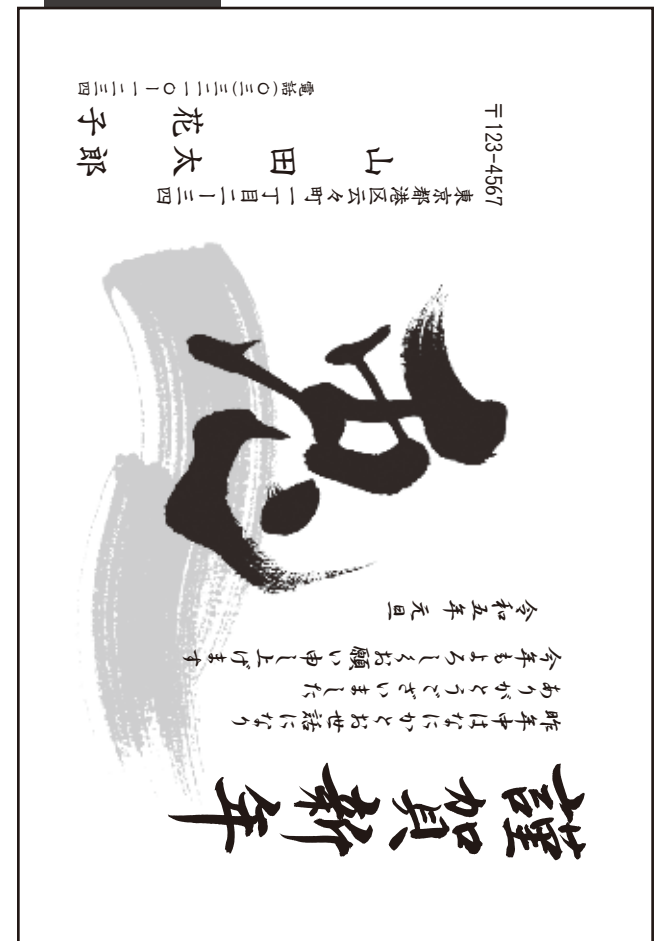 謹賀新年
昨年中はなにかとお世話になり
ありがとうございました
今年もよろしくお願い申し上げます
令和五年 元旦
兎
〒123-4567
東京都港区云々町一丁目二ー三四
山田太郎
花子
電話(〇三)三二一〇ー一二三四